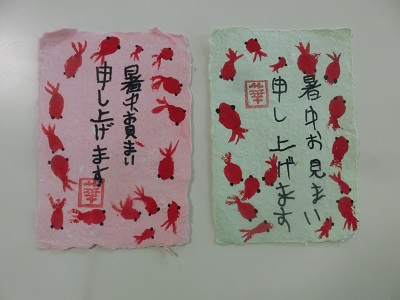 暑中お見まい
申し上げます
華
暑中お見まい
申し上げます
華